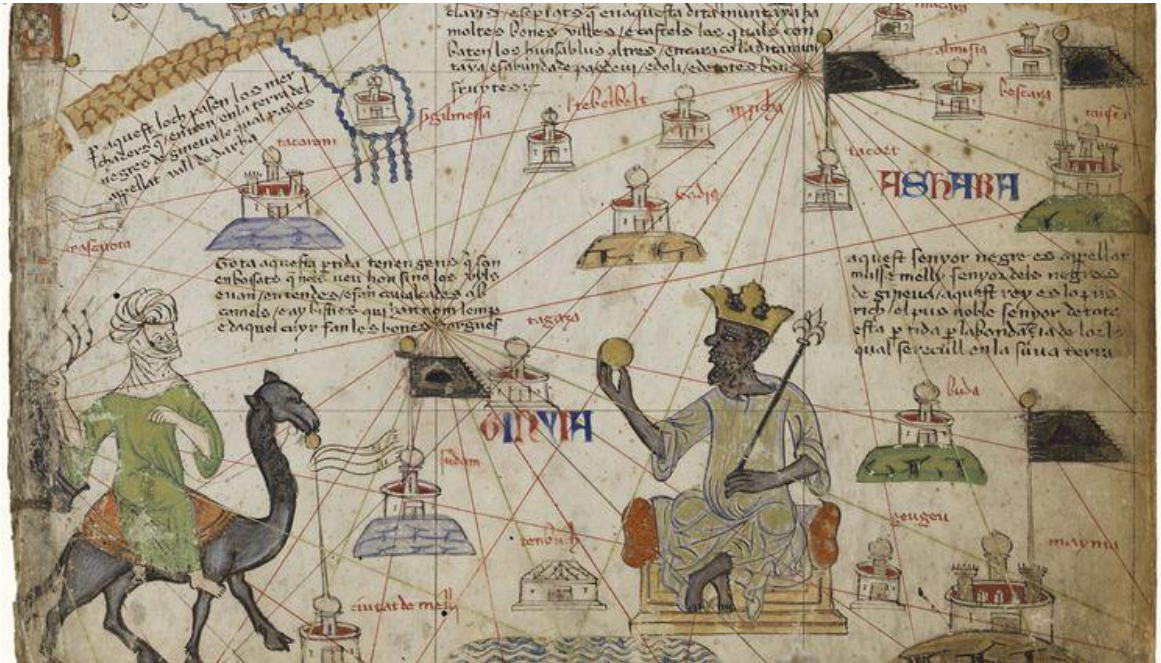 moltes bones villes / e castels los quals con
baten los huns ab lus altres / encara co la dita mun
taya es abundade de pa e de vi / e doli / e de totes bones
fruytes:
P aquest loch pasen los mer
chaders q̄ entren en la terra del
negres de gineua lo qual pas es
appellat vall de darha
tacorom
sigilmessa
tebelbelt
buda
tacost
ASHARA
Tota aquesta ptida tenen gens q̄ son
enbosats q̄ nols veu hom sino los vyls
e van / en tendes / e fan caualcades ab
camels / e ay bisties qui han nom lemp
e daquel cuyr fan les bones dargues
aquest senyor negre es appellat
musse melly senyor dels negres
de gineua / aquest rey es lo pus
rich / el pus noble senyor de tota
esta ptida p labondancia de lor lo
qual se recull en la sua terra
tagaza
GINVIA
sudam
tenbuch
geugeu
mayma
ciutat de melly